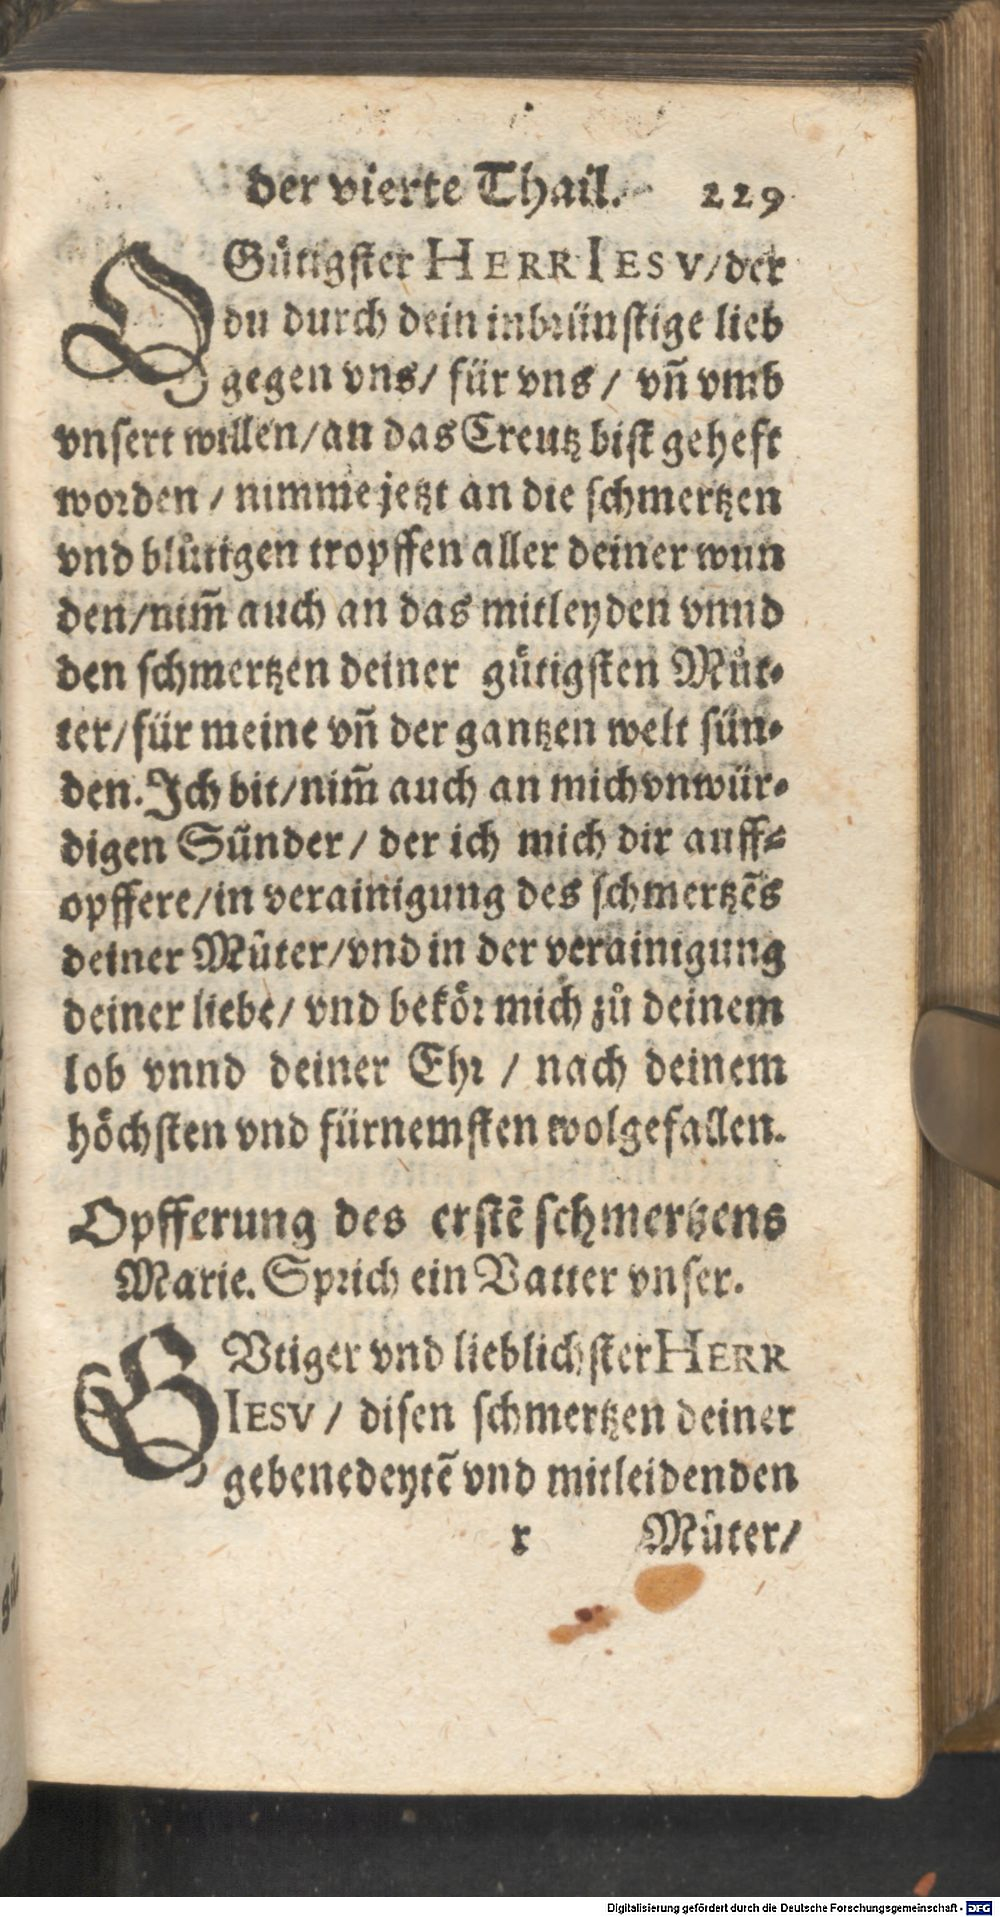 der vierte Thail. 229
O Gůtigster HERR IESV/der
du durch dein inbrünstige lieb
gegen vns/ für vns / vñ vmb
vnsert willen/an das Creutz bist geheft
worden / nimme jetzt an die schmertzen
vnd blůtigen tropffen aller deiner wun
den/nim̃ auch an das mitleyden vnnd
den schmertzen deiner gütigsten Můt-
ter/für meine vñ der gantzen welt sün-
den. Ich bit/nim̃ auch an mich vnwür-
digen Sünder / der ich mich dir auff-
opffere/in verainigung des schmertzẽs
deiner Můter/vnd in der verainigung
deiner liebe/ vnd bekör mich zů deinem
lob vnnd deiner Ehr / nach deinem
höchsten vnd fürnemsten wolgefallen.
Opfferung des erstẽ schmertzens
Marie. Sprich ein Vatter vnser.
GVtiger vnd lieblichster HERR
IESV / disen schmertzen deiner
gebenedeytẽ vnd mitleidenden
x Můter/
Digitalisierung gefördert durch die Deutsche Forschungsgemeinschaft - DFG